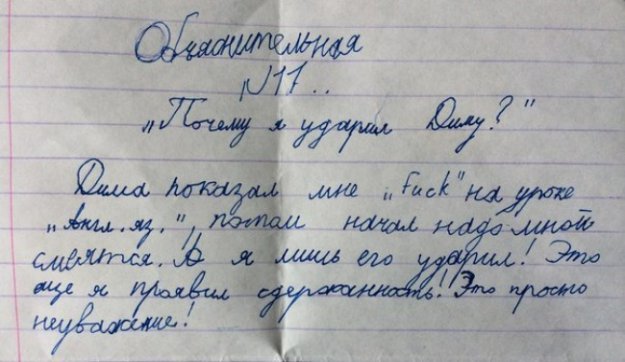 Объяснительная
N17..
„Почему я ударил Диму?"
Дима показал мне „Fuck" на уроке
„Англ. яз.", потом начал надо мной
смеятся. А я лишь его ударил! Это
еще я проявил сдержанность! Это просто
неуважение!